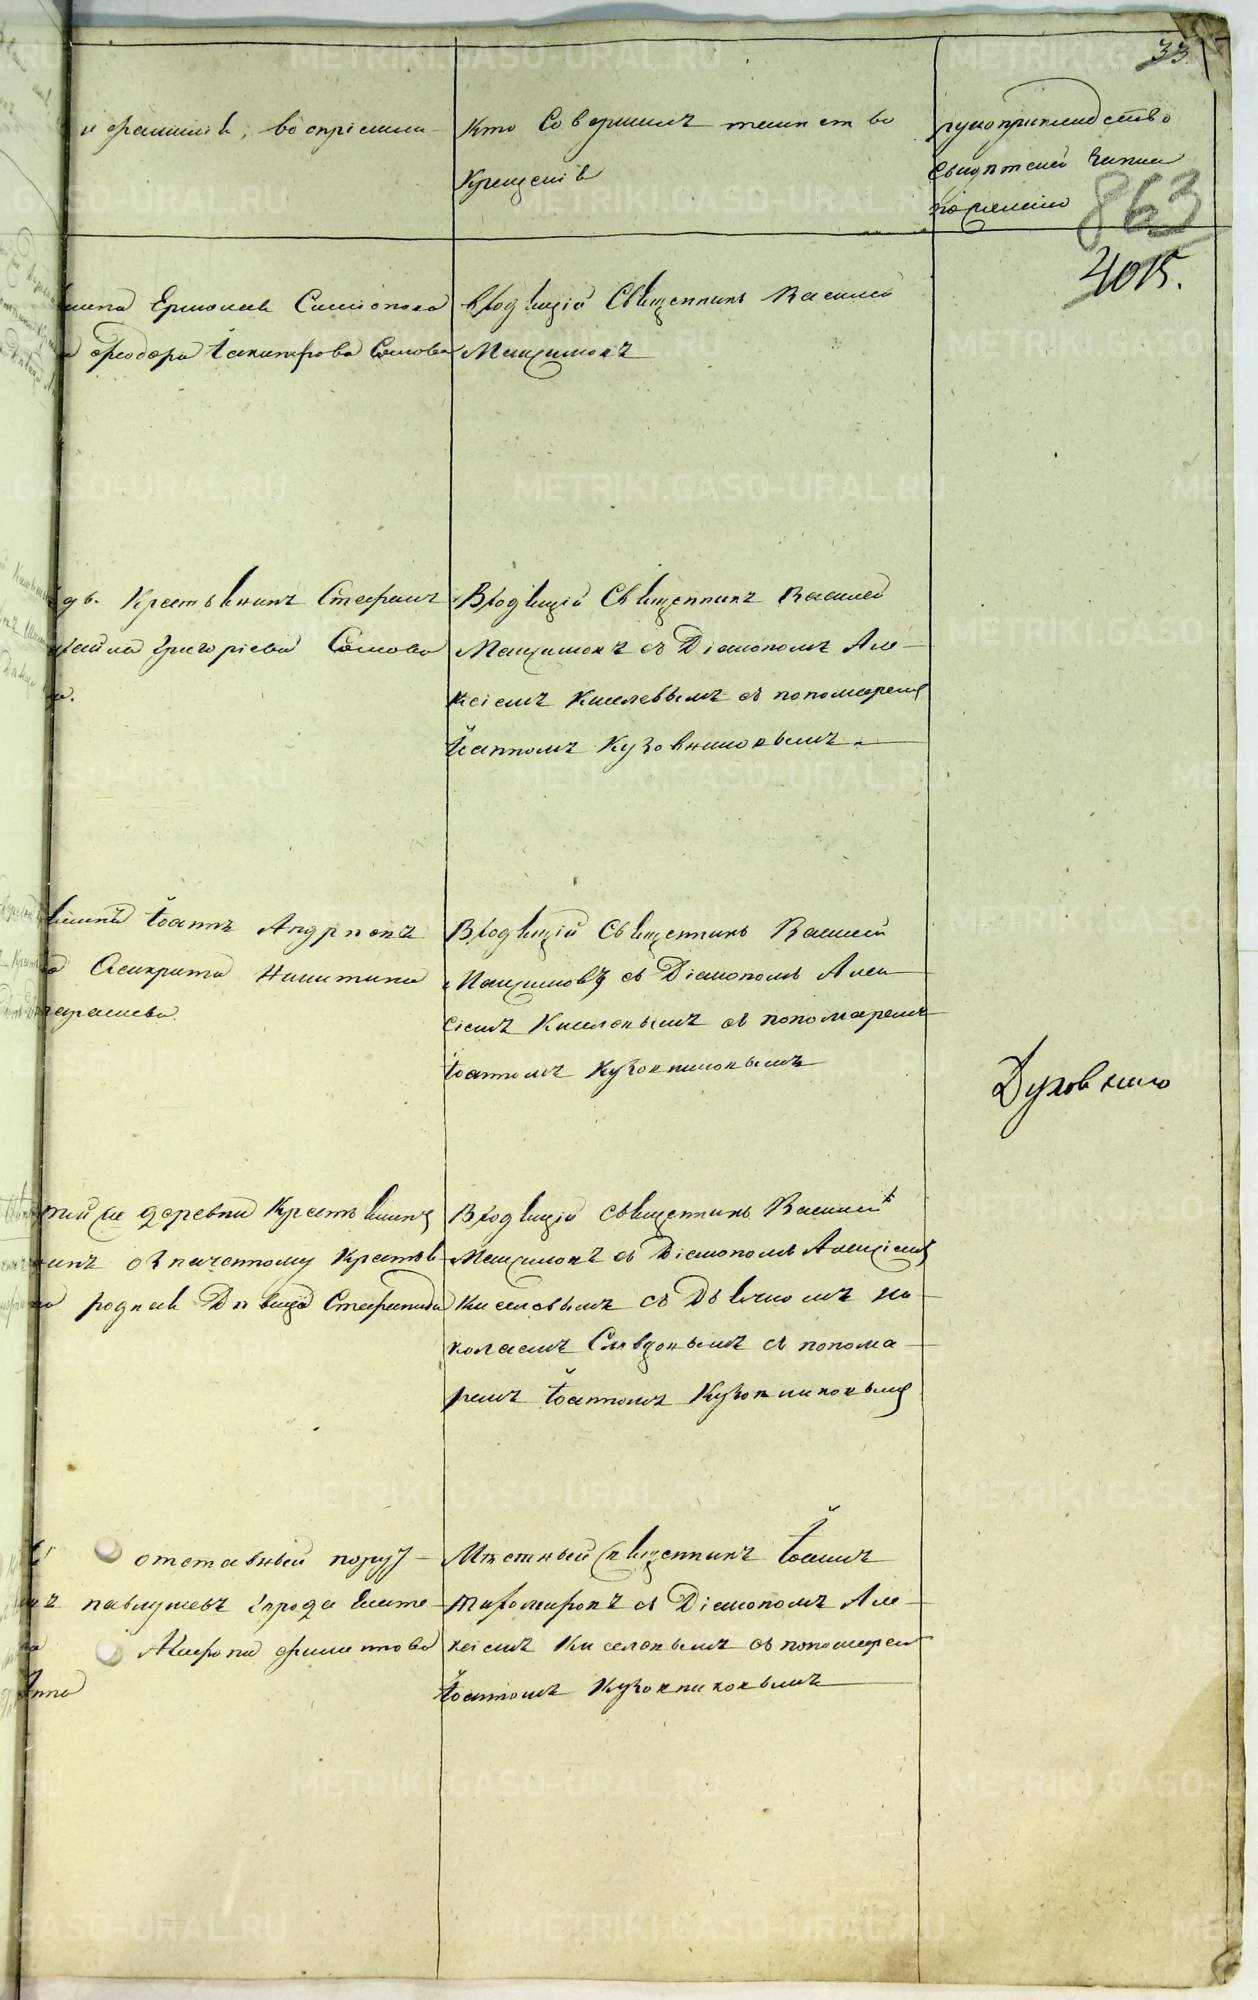 33
и фамилія, воспріемни-
Кто Совершилъ таинство
Крещенія
рукоприкладство
свидѣтелей запи
по желанію
863
4015.
Ермолая
Ѳеодора Сомова
Входящій Священникъ Василей
Максимовъ
Крестьянинъ Стефанъ
Григоріева Сомова
Входящій Священникъ Василей
Максимовъ съ Діакономъ Але-
ксіемъ Киселевымъ съ пономаремъ
Іоанномъ Кузовниковымъ
Іоаннъ Андріевъ
Никитина
Входящій Священникъ Василей
Максимовъ съ Діакономъ Алек
сіемъ Киселевымъ съ пономаремъ
Іоанномъ Кузовниковымъ
Духовнаго
деревни Крестьянинъ
означенному Крестья
родная Дѣвица Стефанида
Входящій священникъ Василей
Максимовъ съ Діакономъ Алексіемъ
Киселевымъ съ Дьячкомъ Ни-
колаемъ съ понома-
ремъ Іоанномъ Кузовниковымъ
отставный пору-
Павлушевъ города Екате-
Филипова
Анна
Мѣстный священникъ Іоаннъ
Тихомировъ съ Діакономъ Але-
ксіемъ Киселевымъ съ пономарем
Іоанномъ Кузовниковымъ
METRIKI.GASO-URAL.RU